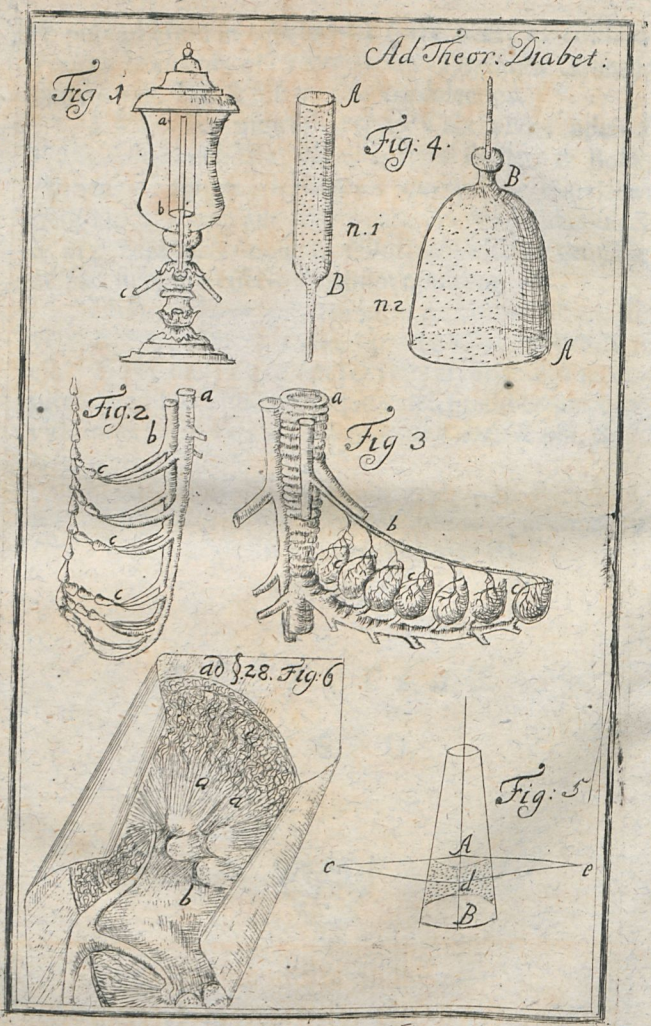 Ad Theor: Diabet:
Fig 1
a
b
c
A
n.1
B
Fig: 4.
B
n.2
A
Fig. 2
a
b
c
c
c
Fig 3
a
b
c
c
c
ad §. 28. Fig: 6
a
a
b
Fig: 5
A
c
e
d
B